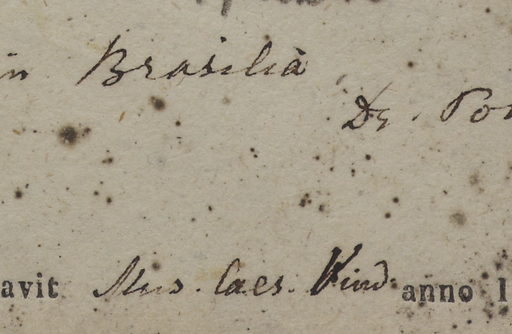 in Brasiliâ
Dr. Po
avit Mus. Caes. Vind. anno 1